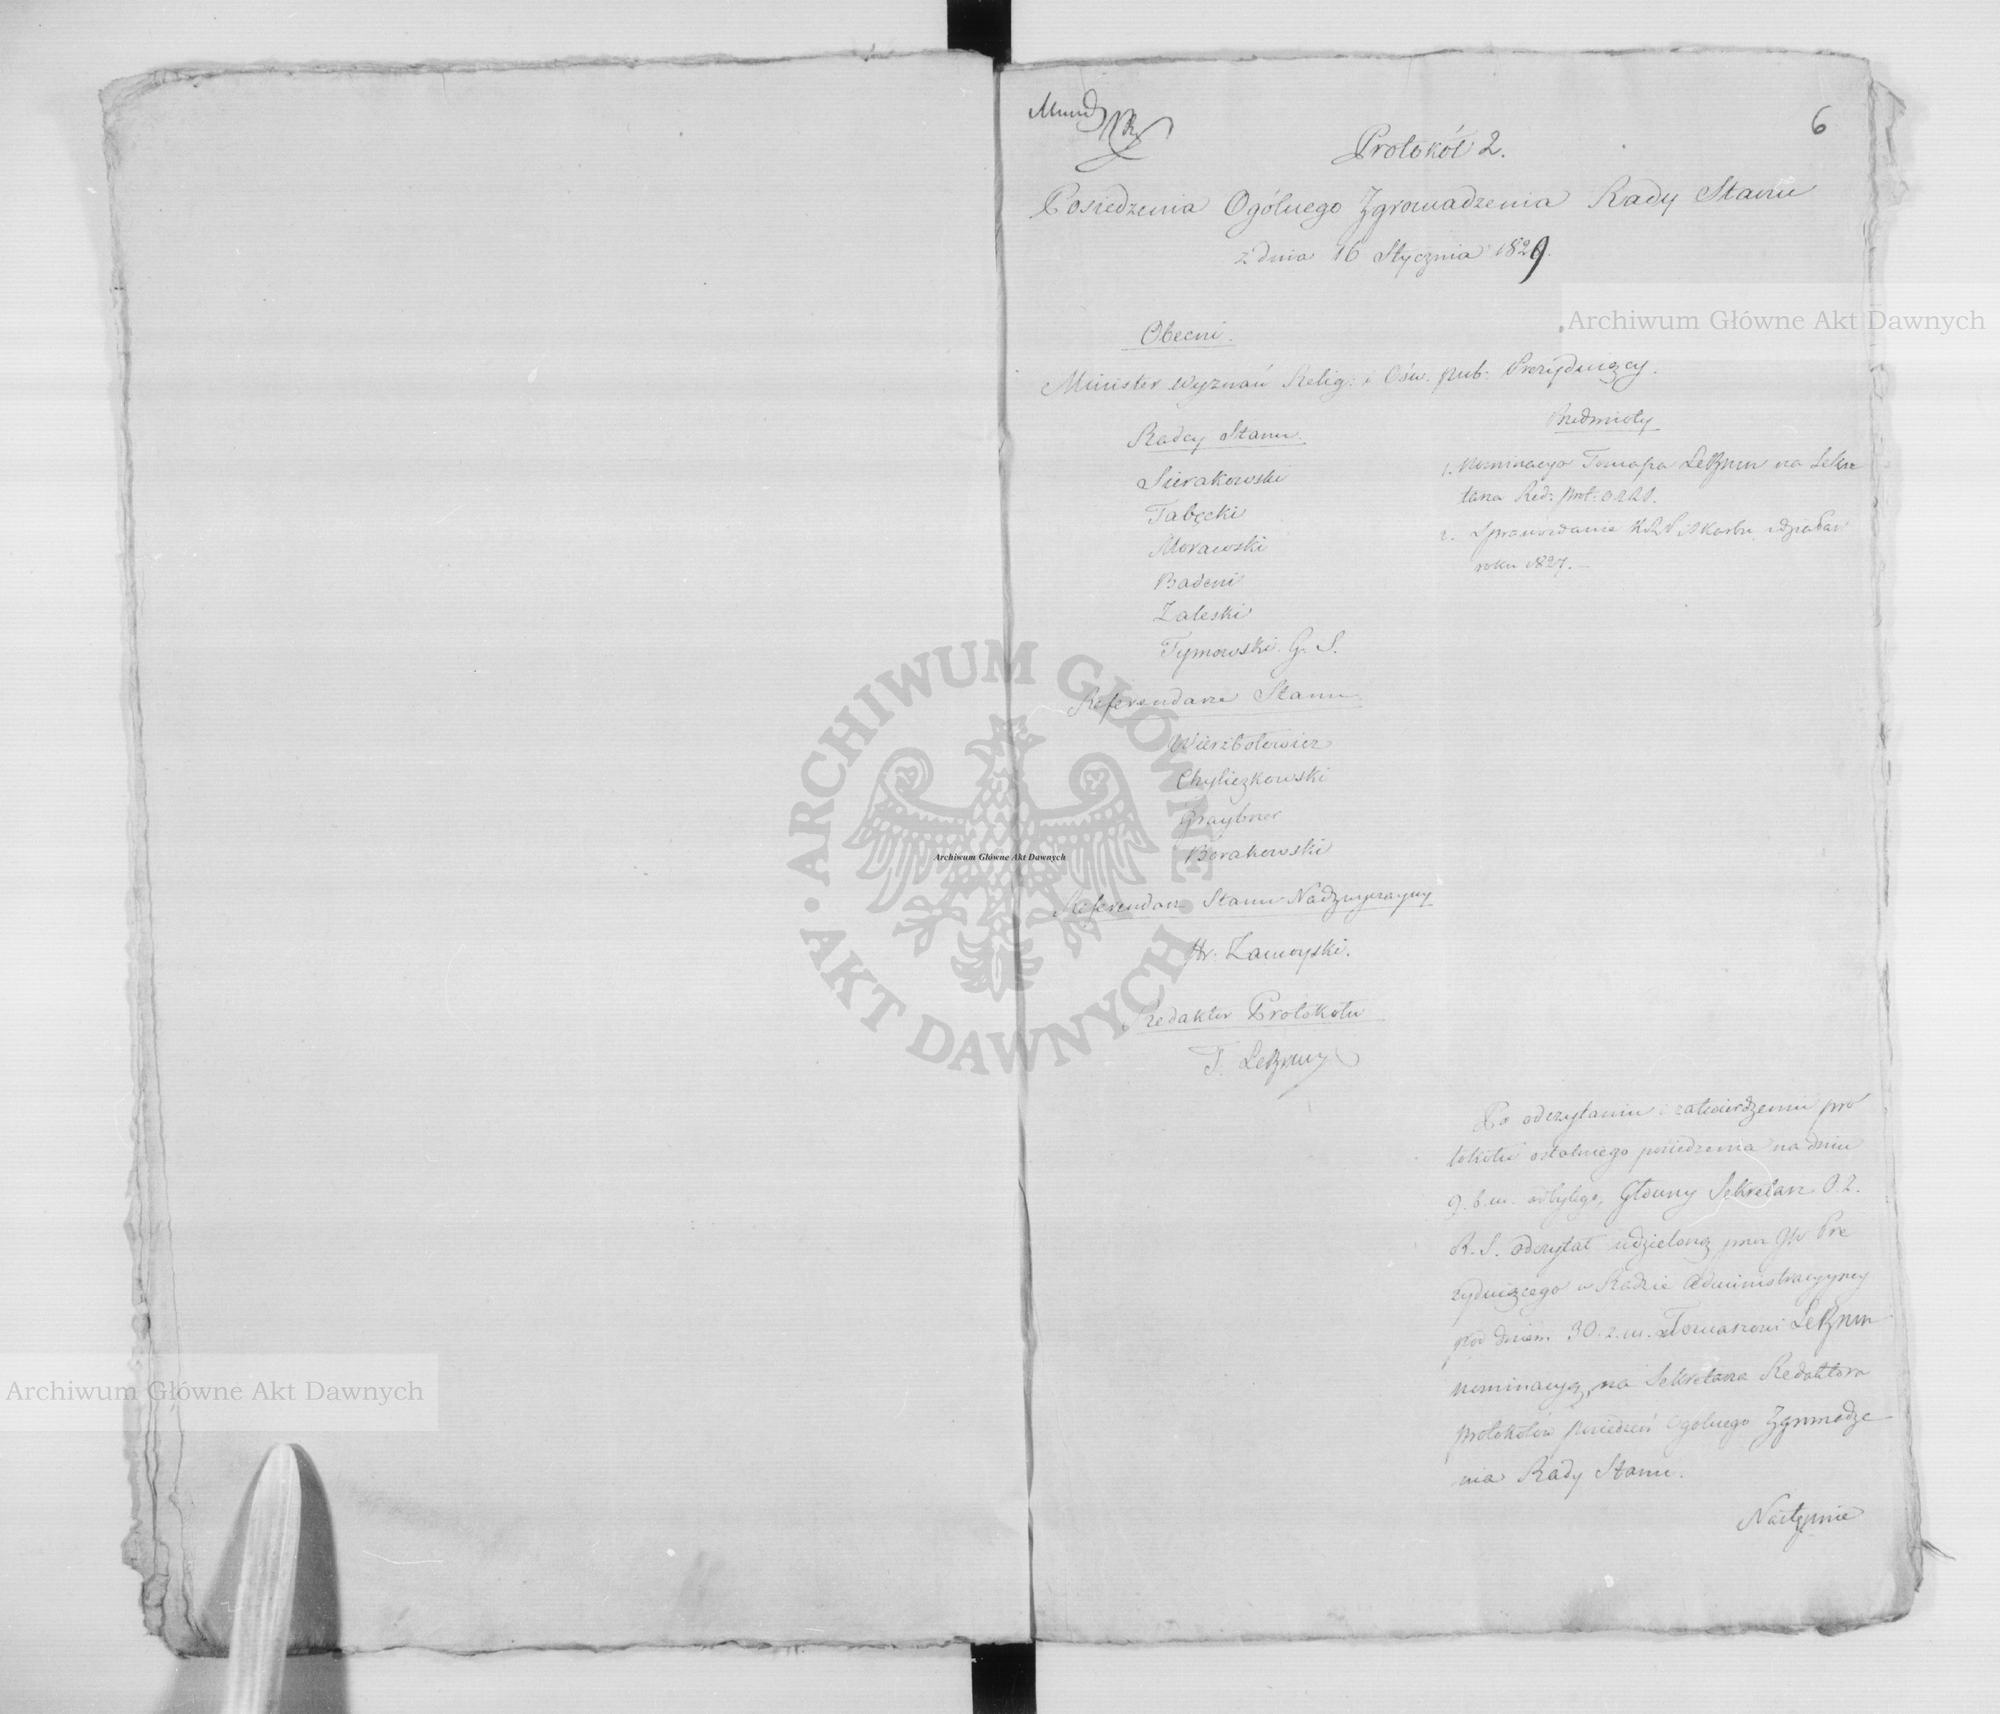 Mund
6
Protokół 2.
Posiedzenia Ogólnego Zgromadzenia Rady Stanu
z dnia 16 Stycznia 1829.
Archiwum Główne Akt Dawnych
Obecni.
Minister Wyznań Relig: i Ośw. pub. Prezyduiący.
Radcy Stanu.
Sierakowski
Tabęcki
Morawski
Badeni
Zaleski
Tymowski G. S.
Przedmioty
1. Nominacya Tomasza na Sekre
tarza Red: Prot:
2. Sprawozdanie Skarbu z działań
roku 1827. —
Referendarze Stanu
Wierzbołowicz
Chyliczkowski
Graybner
Borakowski
Referendarz Stanu Nadzwyczayny
Hr. Zamoyski.
Redaktor Protokółu
T.
Po odczytaniu i zatwierdzeniu pro
tokółu ostatniego posiedzenia na dniu
9. b. m. odbytego, Główny Sekretarz O. Z.
R. S. odczytał udzieloną przez JW Pre
zyduiącego w Radzie Administracyyney
pod dniem 30. z. m. Tomaszowi
nominacyą, na Sekretarza Redaktora
protokółów posiedzeń Ogólnego Zgromadze
nia Rady Stanu.
Następnie
ARCHIWUM GŁÓWNE AKT DAWNYCH
Archiwum Główne Akt Dawnych
Archiwum Główne Akt Dawnych